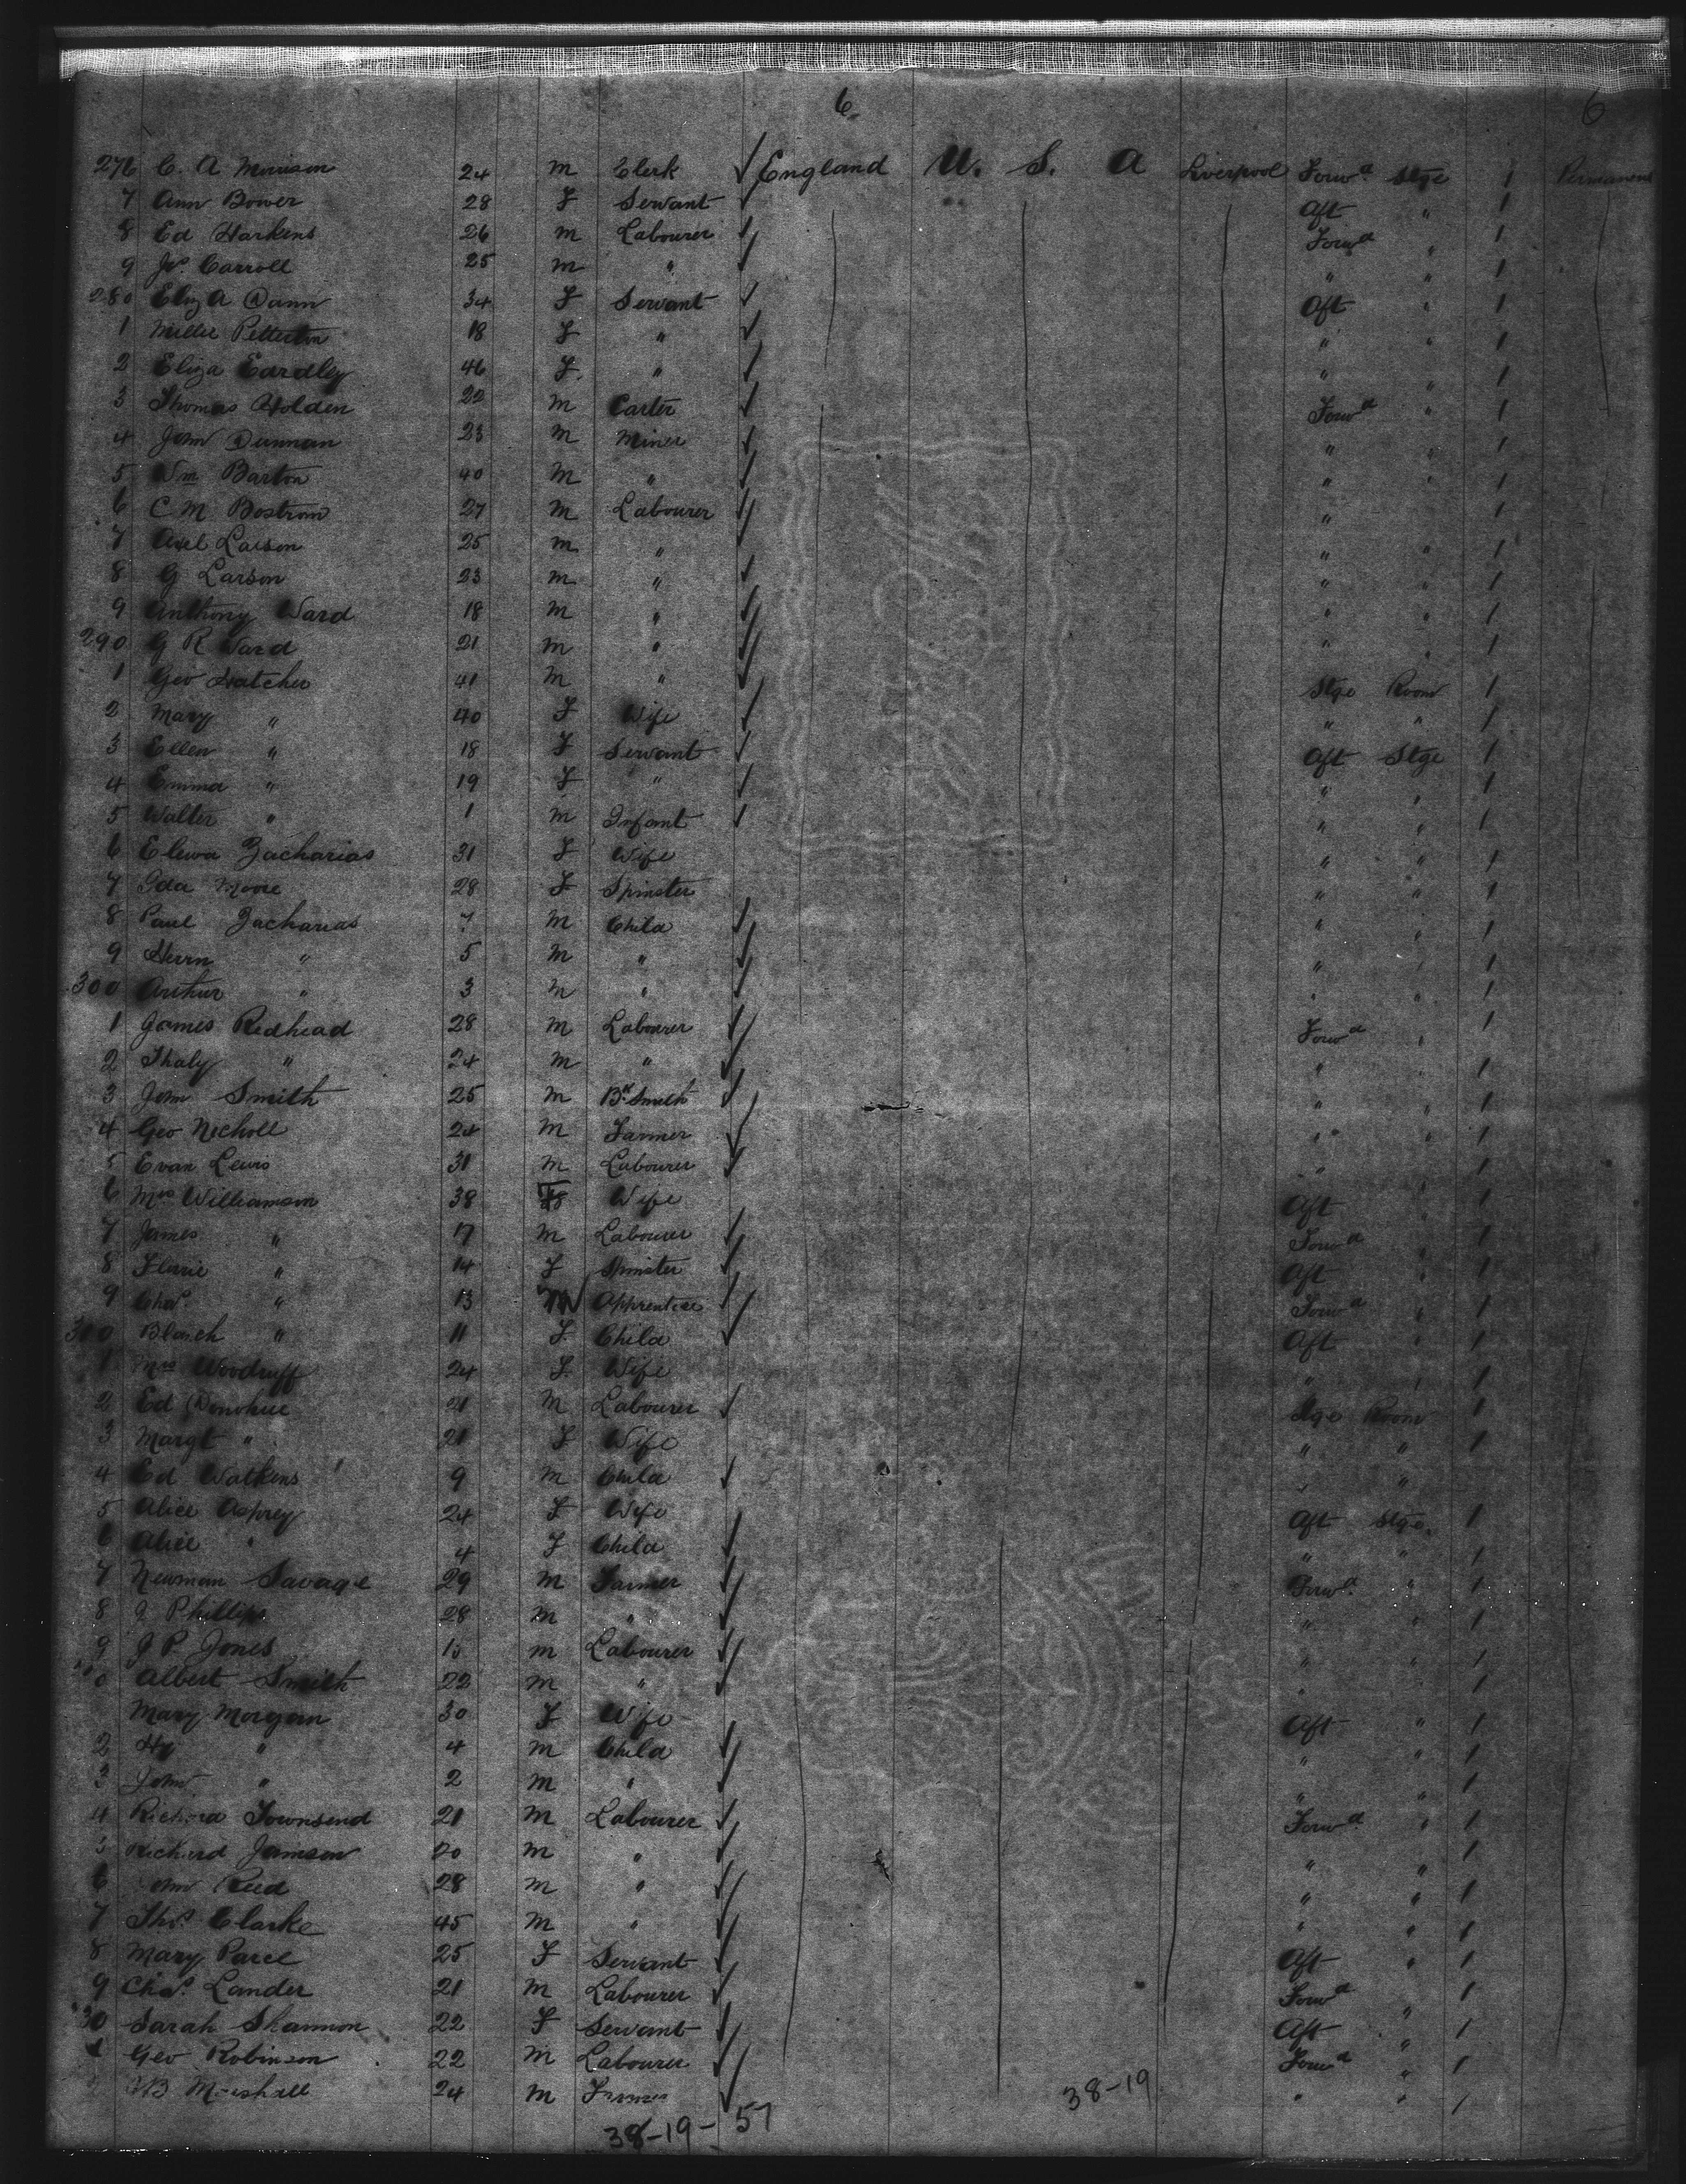 6 6
276 C. A Morrison 24 m Clerk England U. S. A Liverpool Forwd Stge 1 Permanent
7 Ann Bower 28 F Servant Aft " 1
8 Ed Harkens 26 m Labourer Forwd " 1
9 Jos. Carroll 25 m " " " 1
280 Eliza Dann 34 F Servant Aft " 1
1 Millie 18 F " " " 1
2 Eliza Eardley 46 F " " " 1
3 Thomas Holden 22 m Carter Forwd " 1
4 John Dunnan 23 m Miner " " 1
5 Wm Barton 40 m " " " 1
6 C M Bostrom 27 m Labourer " 1
7 Axel Larson 25 m " " " 1
8 G Larson 23 m " " " 1
9 Anthony Ward 18 m " " " 1
290 G R Ward 21 m " " " 1
1 Geo Hatcher 41 m " Stge Room 1
2 Mary " 40 F Wife " " 1
3 Ellen " 18 F Servant Aft Stge 1
4 Emma " 19 F " " " 1
5 Walter " 1 m Infant " " 1
6 Zacharias 31 F Wife " " 1
7 Ida Moore 28 F Spinster " " 1
8 Paul Zacharias 7 m Child " " 1
9 Herrn " 5 m " " " 1
300 Arthur " 3 m " " " 1
1 James Redhead 28 m Labourer Forwd " 1
2 Thaly " 24 m " " 1
3 John Smith 25 m Bk Smith " " 1
4 Geo Nicholl 24 m Farmer " " 1
5 Evan Lewis 31 m Labourer " 1
6 Mrs Williamson 38 F Wife Aft " 1
7 James " 17 m Labourer Forwd " 1
8 Florrie " 14 F Spinster Aft " 1
9 Chas. " 13 m Apprentice Forwd " 1
310 Blanch " 11 F Child Aft " 1
1 Mrs Woodruff 24 F Wife " " 1
2 Ed Donohue 21 m Labourer Stge Room 1
3 Margt " 21 F Wife " " 1
4 Ed Watkins 9 m Child " "
5 Alice Asprey 24 F Wife Aft Stge. 1
6 Alice " 4 F Child " " 1
7 Newman Savage 29 m Farmer Forwd. " 1
8 J Phillips 28 m " " " 1
9 J P Jones m Labourer " " 1
0 Albert Smith 22 m " " 1
Mary Morgan 30 F Wife Aft " 1
2 Hy " 4 m Child " " 1
3 John " 2 m " " " 1
4 Richard Townsend 21 m Labourer Forwd. " 1
5 Richard Jamson 20 m " " " 1
6 John Reed 28 m " " " 1
7 Thos. Clarke 45 m " " " 1
8 Mary Parcel 25 F Servant Aft " 1
9 Chas. Lander 21 m Labourer Forwd " 1
30 Sarah Shannon 22 F Servant Aft " 1
1 Geo Robinson 22 m Labourer Forwd " 1
2 Marshall 24 m Farmer " " 1
38-19
38-19-57